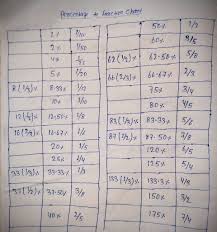 Percentage to fraction Chart
2% 1/50
5% 1/20
8(1/3)% 8.33%
10% 1/10
12(1/2)% 12.50% 1/8
16.67% 1/6
20% 1/5
25% 1/4
33(1/3)% 33.33% 1/3
37(1/2)% 3/8
40% 2/5
50% 1/2
60% 3/5
62(1/2)% 62.50% 5/8
66(2/3)% 66.67% 2/3
75% 3/4
80% 4/5
83(1/3)% 83.33% 5/6
87(1/2)% 87.50% 7/8
120% 6/5
125% 5/4
133(1/3)% 133.3% 4/3
150% 3/2
175% 7/4